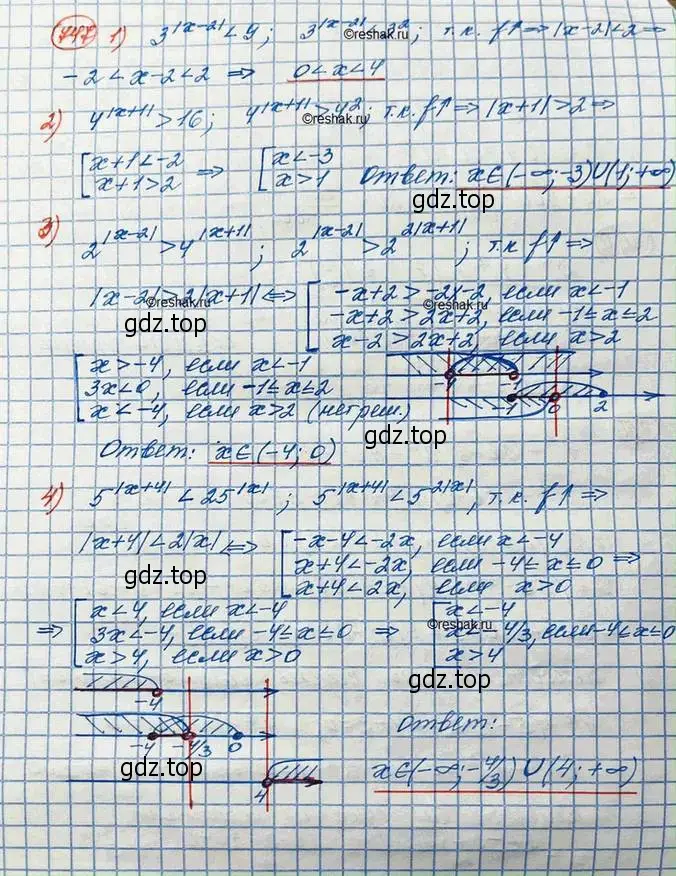 747 1) 3^|x-2| < 9; 3^|x-2| < 3^2; т.к. f↑ ⇒ |x-2| < 2 ⇒
©reshak.ru
-2 < x-2 < 2 ⇒ 0 < x < 4
2) 4^|x+1| > 16; 4^|x+1| > 4^2; т.к. f↑ ⇒ |x+1| > 2 ⇒
©reshak.ru
[ x+1 < -2
x+1 > 2 ⇒ [ x < -3
x > 1 Ответ: x∈(-∞; -3)∪(1; +∞)
gdz.top
3) 2^|x-2| > 4^|x+1|; 2^|x-2| > 2^2|x+1|; т.к. f↑ ⇒
|x-2| > 2|x+1| ⇔ [ -x+2 > -2x-2, если x < -1
-x+2 > 2x+2, если -1 ≤ x ≤ 2
x-2 > 2x+2, если x > 2
©reshak.ru
©reshak.ru
gdz.top
gdz.top
[ x > -4, если x < -1
3x < 0, если -1 ≤ x ≤ 2
x < -4, если x > 2 (нет реш.)
-4 -1
-1 0 2
Ответ: x∈(-4; 0)
gdz.top
4) 5^|x+4| < 25^|x|; 5^|x+4| < 5^2|x|, т.к. f↑ ⇒
|x+4| < 2|x| ⇔ [ -x-4 < -2x, если x < -4
x+4 < -2x, если -4 ≤ x ≤ 0 ⇒
x+4 < 2x, если x > 0
gdz.top
⇒ [ x < 4, если x < -4
3x < -4, если -4 ≤ x ≤ 0 ⇒
x > 4, если x > 0
[ x < -4
x < -4/3, если -4 ≤ x ≤ 0
x > 4
©reshak.ru
gdz.top
-4
-4 -4/3 0
4
Ответ:
x∈(-∞; -4/3)∪(4; +∞)
gdz.top